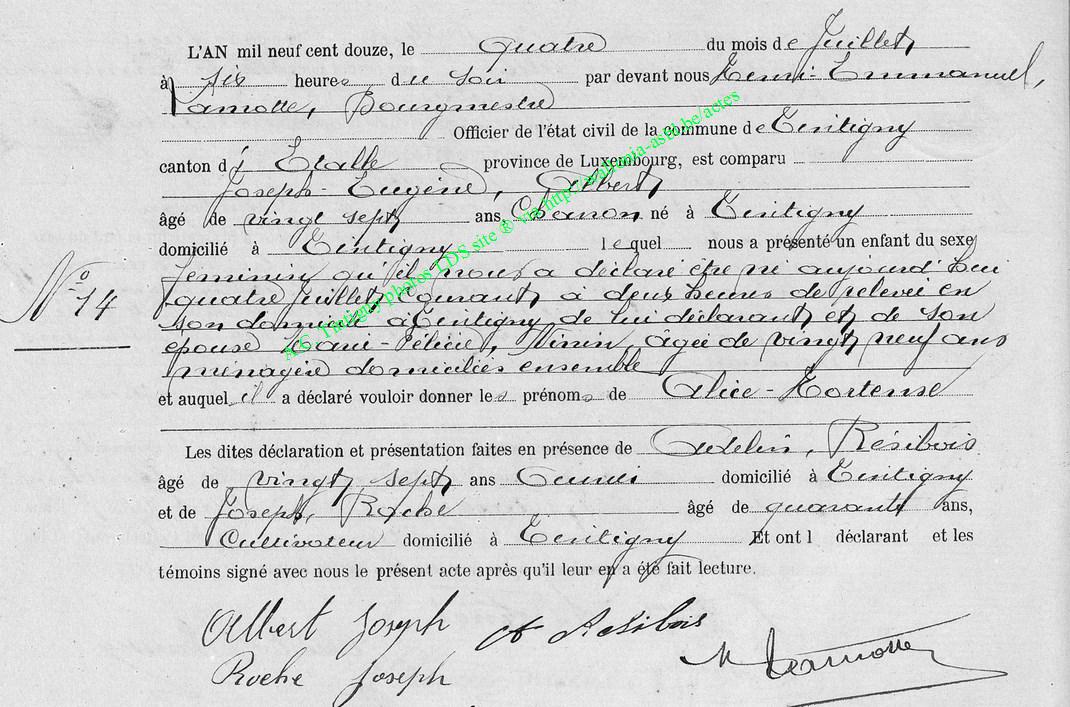 L'AN mil neuf cent douze, le quatre du mois de Juillet,
à six heures du soir par devant nous Henri-Emmanuel,
Lamotte, Bourgmestre
Officier de l'état civil de la commune de Tintigny
canton d' Etalle province de Luxembourg, est comparu
Joseph-Eugène, Albert,
âgé de vingt sept ans, né à Tintigny
domicilié à Tintigny lequel nous a présenté un enfant du sexe
N° 14
féminin qu'il nous a déclaré être né aujourd'hui
quatre Juillet courant, à deux heures de relevée en
son domicile à Tintigny de lui déclarant et de son
épouse Marie-Félicie, Ninin, âgée de vingt neuf ans
ménagère domiciliés ensemble
et auquel il a déclaré vouloir donner les prénoms de Alice-Hortense
Les dites déclaration et présentation faites en présence de Adelin, Résibois
âgé de vingt sept ans domicilié à Tintigny
et de Joseph, Roche âgé de quarante ans,
Cultivateur domicilié à Tintigny Et ont l déclarant et les
témoins signé avec nous le présent acte après qu'il leur en a été fait lecture.
Albert Joseph A Résibois
Roche Joseph H Lamotte
A.C. Tintigny photos LDS site ® via http://watlania-asbl.be/actes